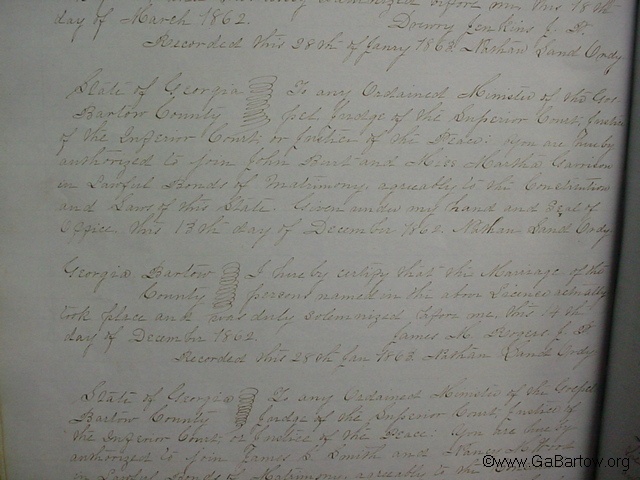 day of March 1862. Drewry Jenkins J. P.
Recorded this 28th of Janry 1863 Nathan Land Ordy
State of Georgia To any Ordained Minister of the Gos-
Bartow County pel, Judge of the Superior Court, Justice
of the Inferior Court, or Justice of the Peace: You are hereby
authorized to join John Burt and Miss Martha Garrison
in Lawful Bonds of Matrimony, agreeably to the Constitution
and Laws of this State. Given under my hand and Seal of
Office this 13th day of December 1862. Nathan Land Ordy
Georgia Bartow I hereby certify that the Marriage of the
County persons named in the above License actually
took place and was duly solemnized before me, this 14th
day of December 1862. James M. Rogers J. P.
Recorded this 28th Jan 1863 Nathan Land Ordy
State of Georgia To any Ordained Minister of the Gospel
Bartow County Judge of the Superior Court, Justice of
the Inferior Court, or Justice of the Peace: You are hereby
authorized to join James S. Smith and Nancy
in Lawful Bonds of Matrimony, agreeably to the
©www.GaBartow.org